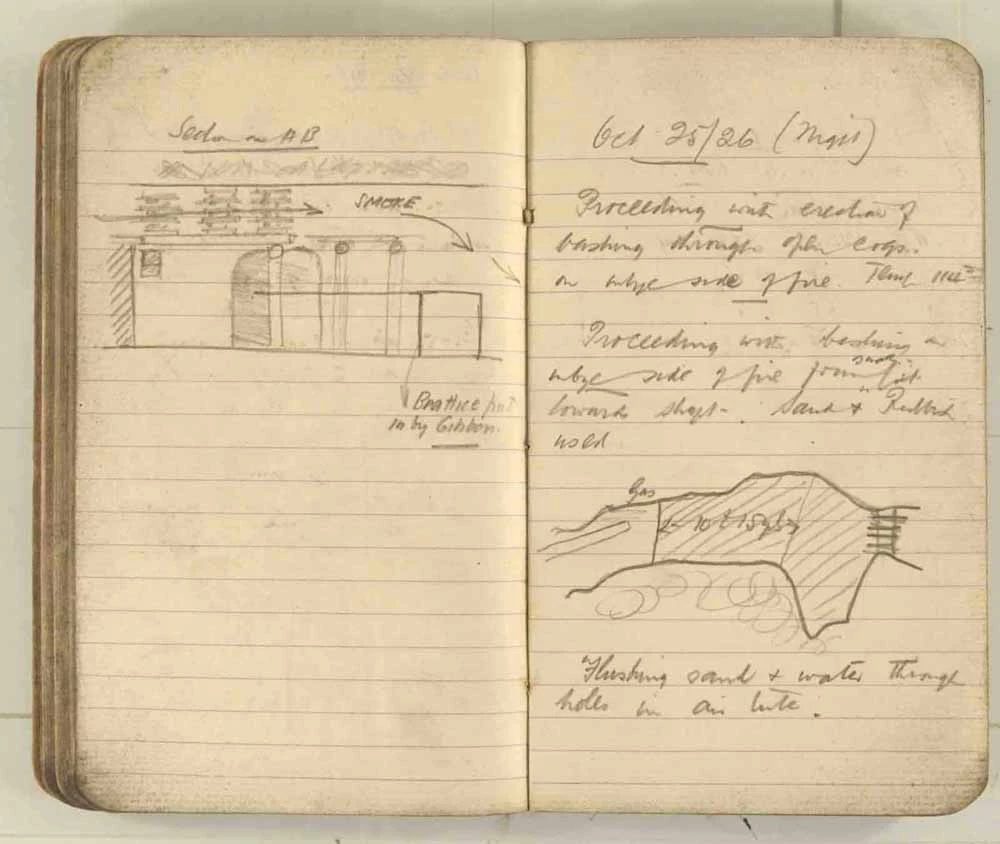 Section on AB
SMOKE
Brattice put
in by Gibbon.
Oct 25/26 (Night)
Proceeding with erection of
bashing through open cogs
on inbye side of fire. Temp
Proceeding with bashing on
inbye side of fire from
towards shaft. Sand &
used
Gas
10 to 15 yds
Flushing sand & water through
holes in air